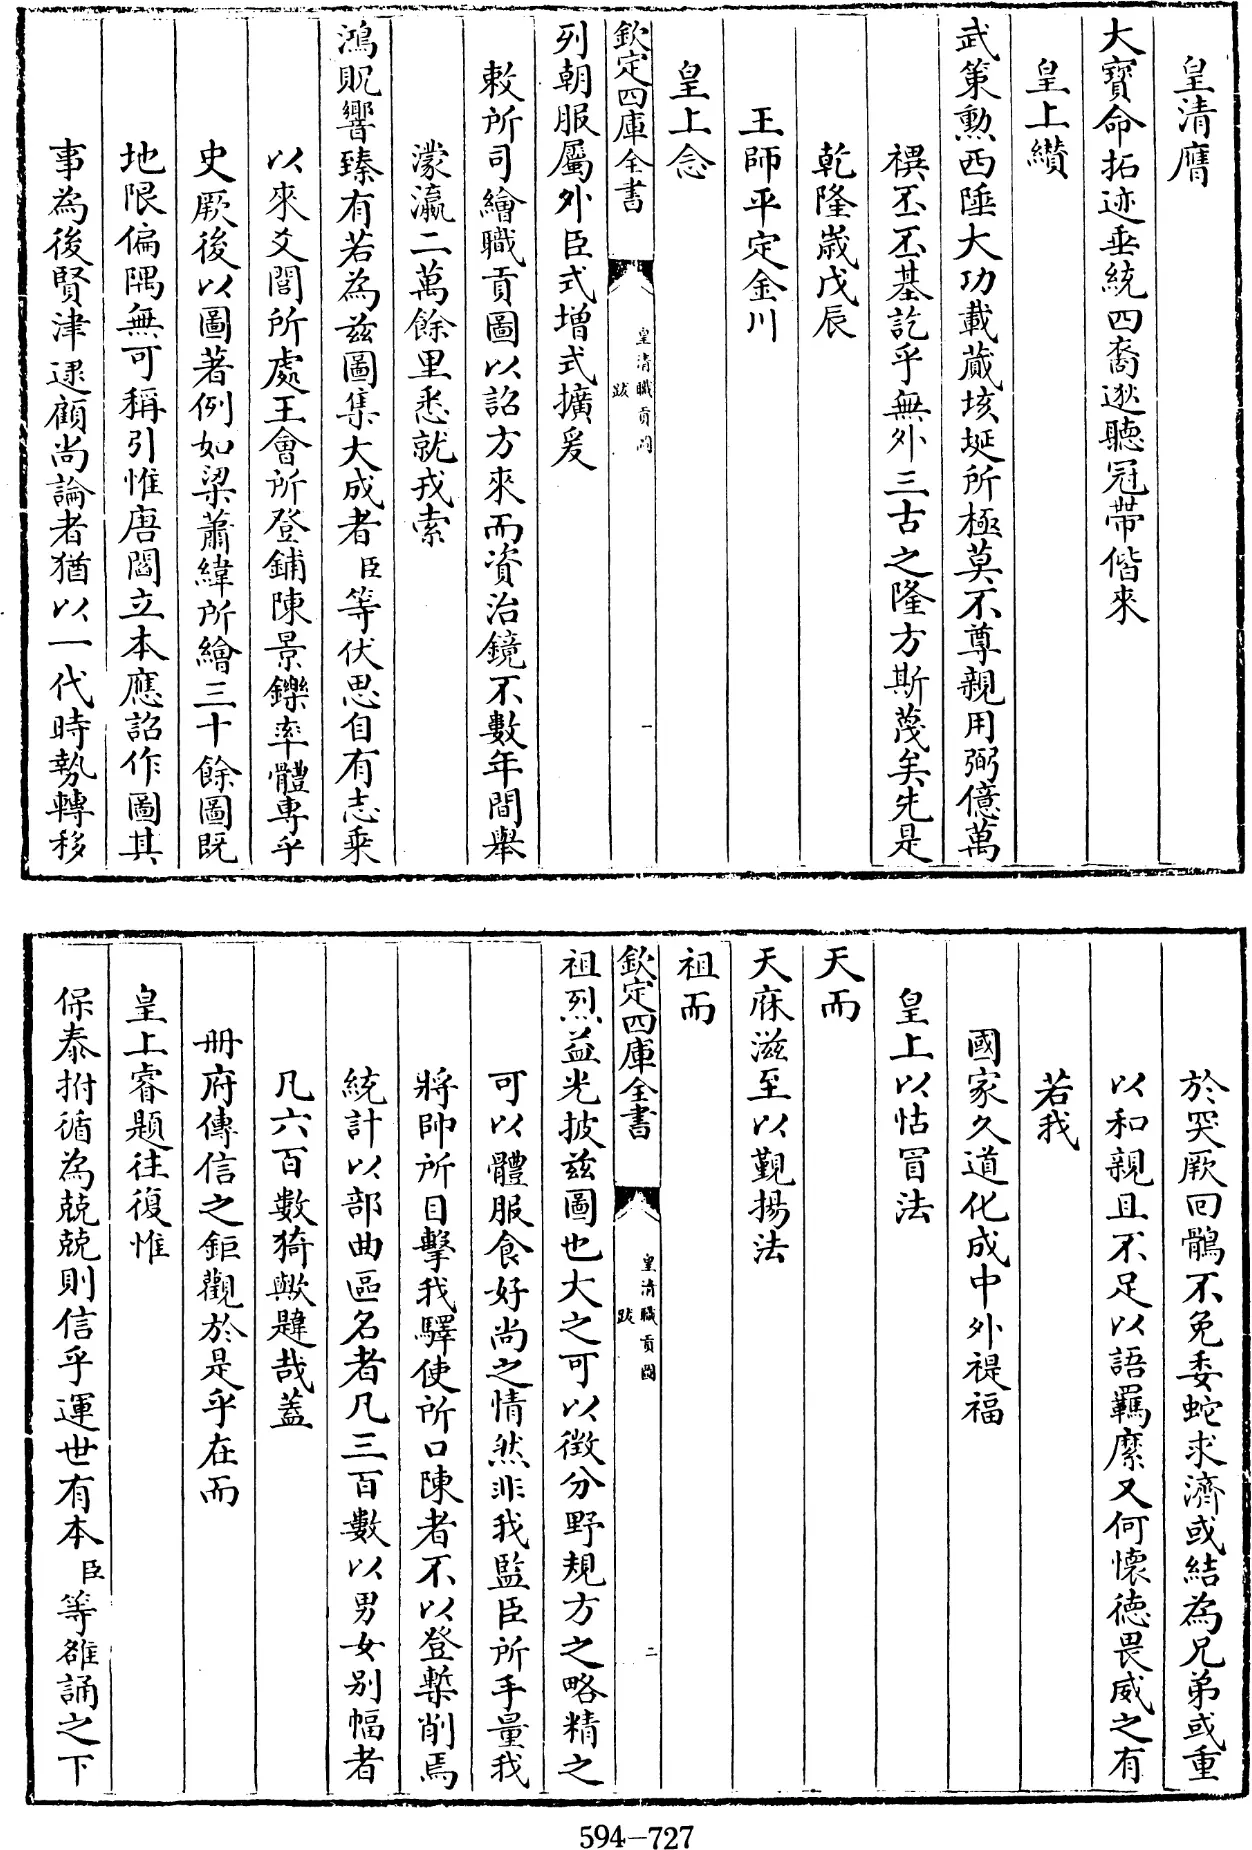 皇清膺
大寶命拓迹垂統四裔逖聽冠帶偕來
皇上纘
武策勲西陲大功載蕆垓埏所極莫不尊親用弼億萬
禩丕丕基訖乎無外三古之隆方斯蔑矣先是
乾隆嵗戊辰
王師平定金川
皇上念
欽定四庫全書
皇清職貢圖
跋
一
列朝服屬外臣式增式擴爰
敕所司繪職貢圖以詔方來而資治鏡不數年間舉
濛瀛二萬餘里悉就戎索
鴻貺響臻有若為兹圖集大成者臣等伏思自有志乘
以來爻閭所處王會所登鋪陳景鑠率體專乎
史厥後以圖著例如梁蕭繹所繪三十餘圖既
地限偏隅無可稱引惟唐閻立本應詔作圖其
事為後賢津逮顧尚論者猶以一代時勢轉移
於突厥回鶻不免委蛇求濟或結為兄弟或重
以和親且不足以語羈縻又何懷德畏威之有
若我
國家久道化成中外禔福
皇上以怙冒法
天而
天庥滋至以覲揚法
祖而
欽定四庫全書
皇清職貢圖
跋
二
祖烈益光披兹圖也大之可以徵分野規方之略精之
可以體服食好尚之情然非我監臣所手量我
將帥所目擊我驛使所口陳者不以登槧削焉
統計以部曲區名者凡三百數以男女别幅者
凡六百數猗歟韙哉蓋
冊府傳信之鉅觀於是乎在而
皇上睿題往復惟
保泰拊循為兢兢則信乎運世有本臣等雒誦之下
594-727